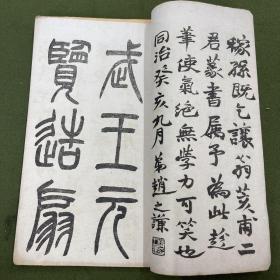 稼孫既乞讓翁荄甫二
君篆書屬予為此趁
筆使氣絕無學力可笑也
同治癸亥九月弟趙之謙
武王元
覽造扇